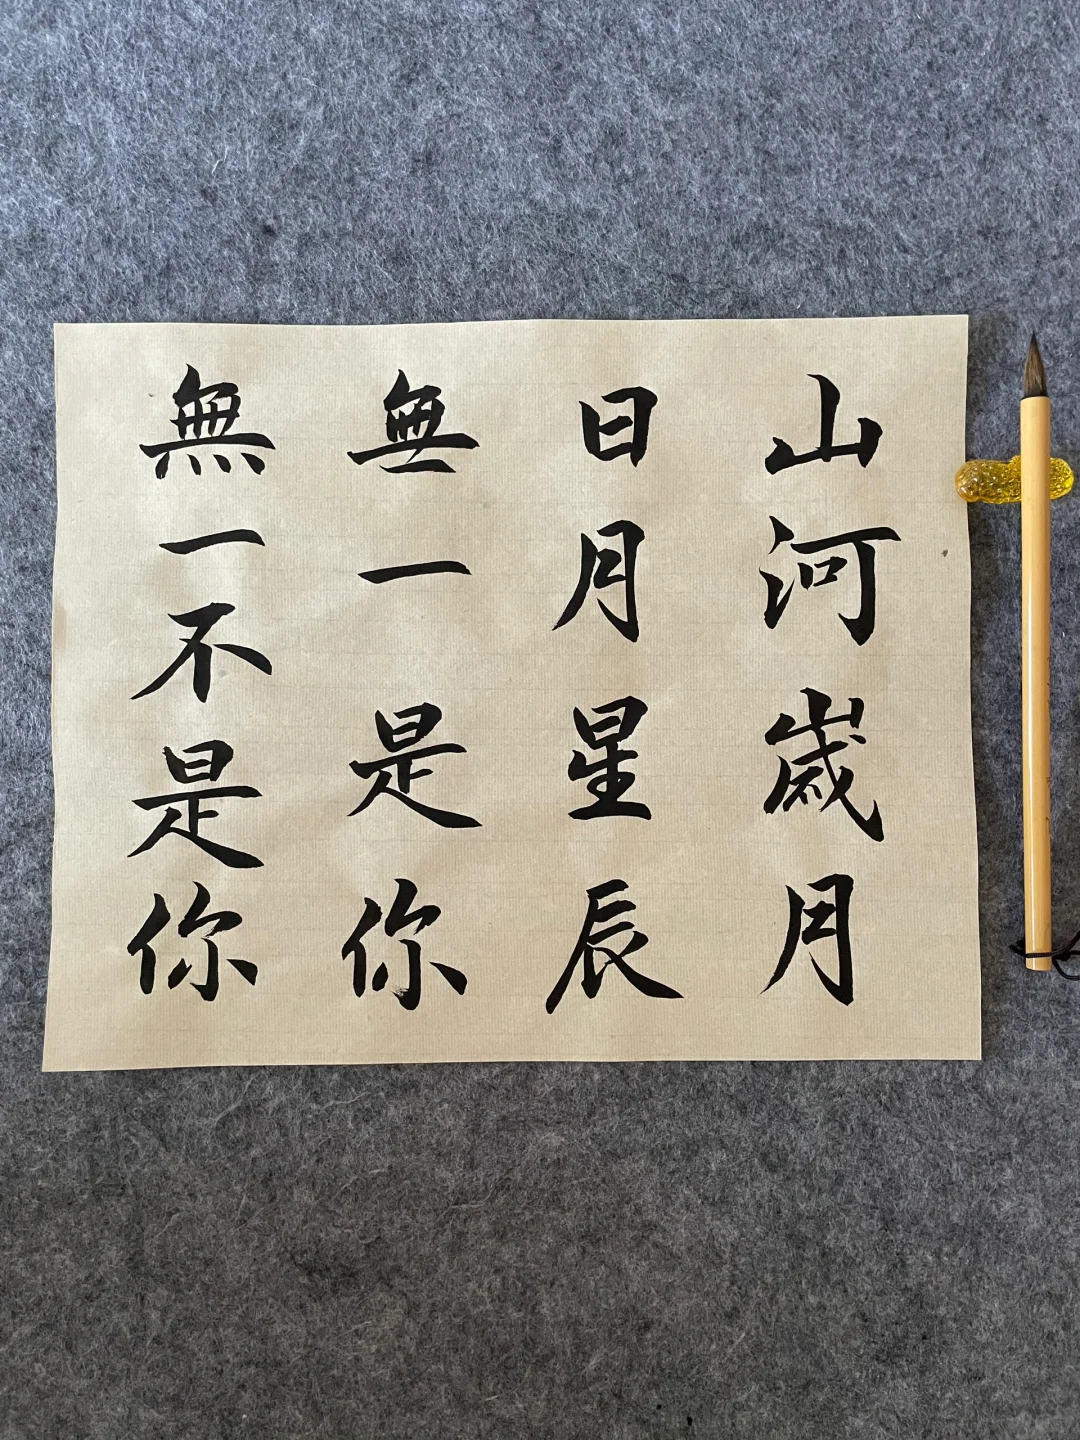 山河歲月
日月星辰
無一是你
無一不是你